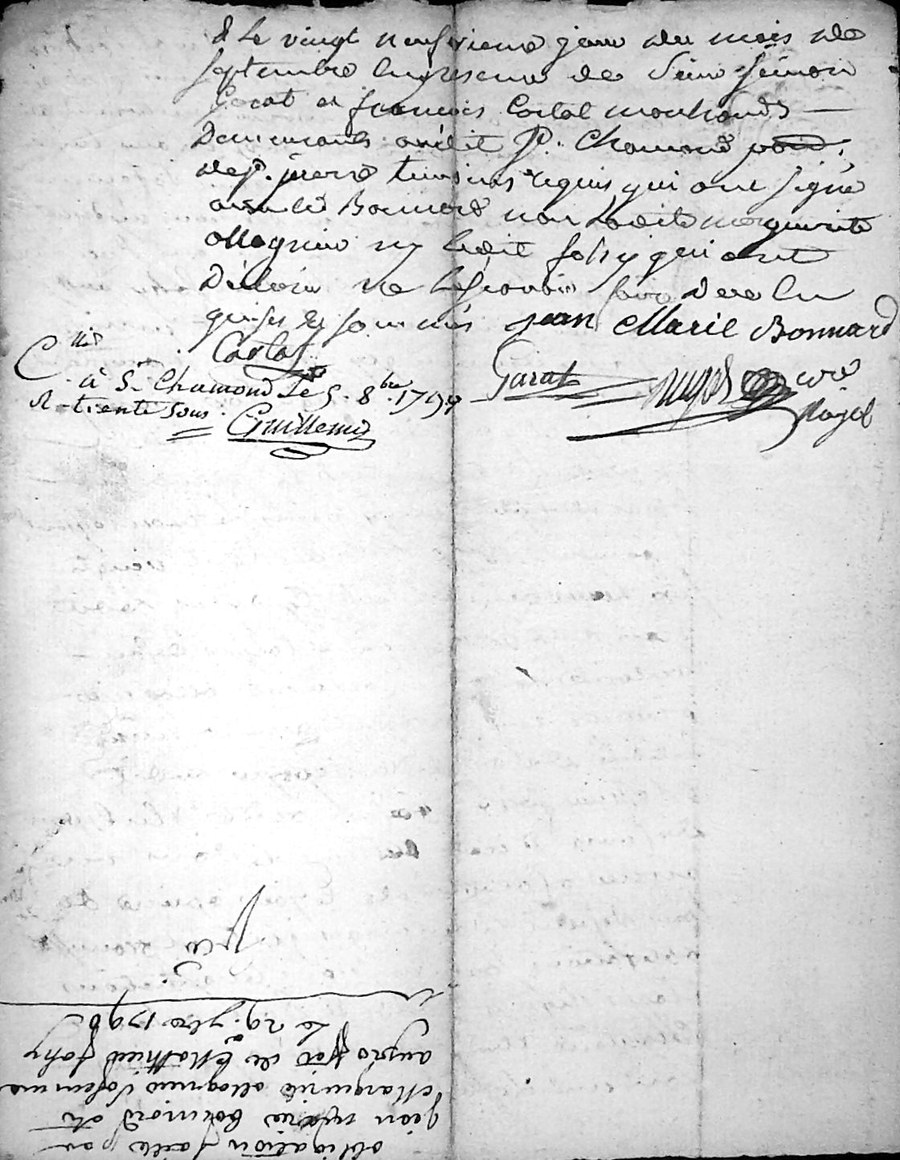 & le vingt neufvieme jour du mois de
septembre en presence de Sieur Simon
Garat et francois Costal marchands
Demeurants audit St. Chamond
de St. pierre temoins requis qui ont signé
avec led Bonnard non ladite marguerite
ny ledit fohy qui ont
Declaré ne le scavoir faire De ce En
quis & sommés jean Marie Bonnard
Costal
Garat
Cllé
à St Chamond Le 9. 8bre. 1794
R. trente sous
Guillemin
obligation faite par
jean marie bonnard et
Marguerite sa femme
au profit de Mathieu fohy
Le 29. 7bre 179